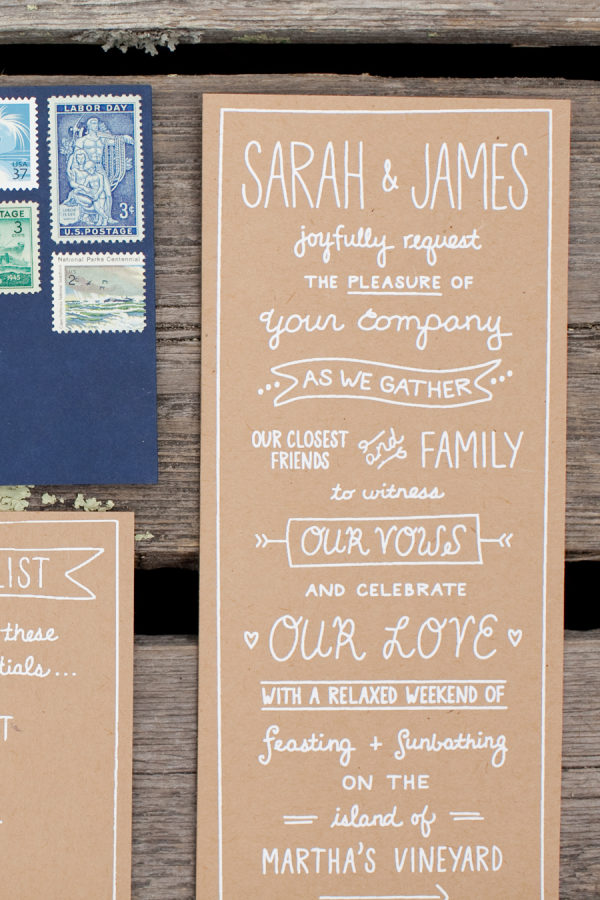 USA
37
LABOR DAY
3¢
U.S. POSTAGE
3
CENTS
1945
National Parks Centennial
2¢
SARAH & JAMES
joyfully request
THE PLEASURE OF
your company
AS WE GATHER
OUR CLOSEST FRIENDS and FAMILY
to witness
OUR VOWS
AND CELEBRATE
OUR LOVE
WITH A RELAXED WEEKEND OF
feasting + sunbathing
ON THE
island of
MARTHA'S VINEYARD
LIST
these